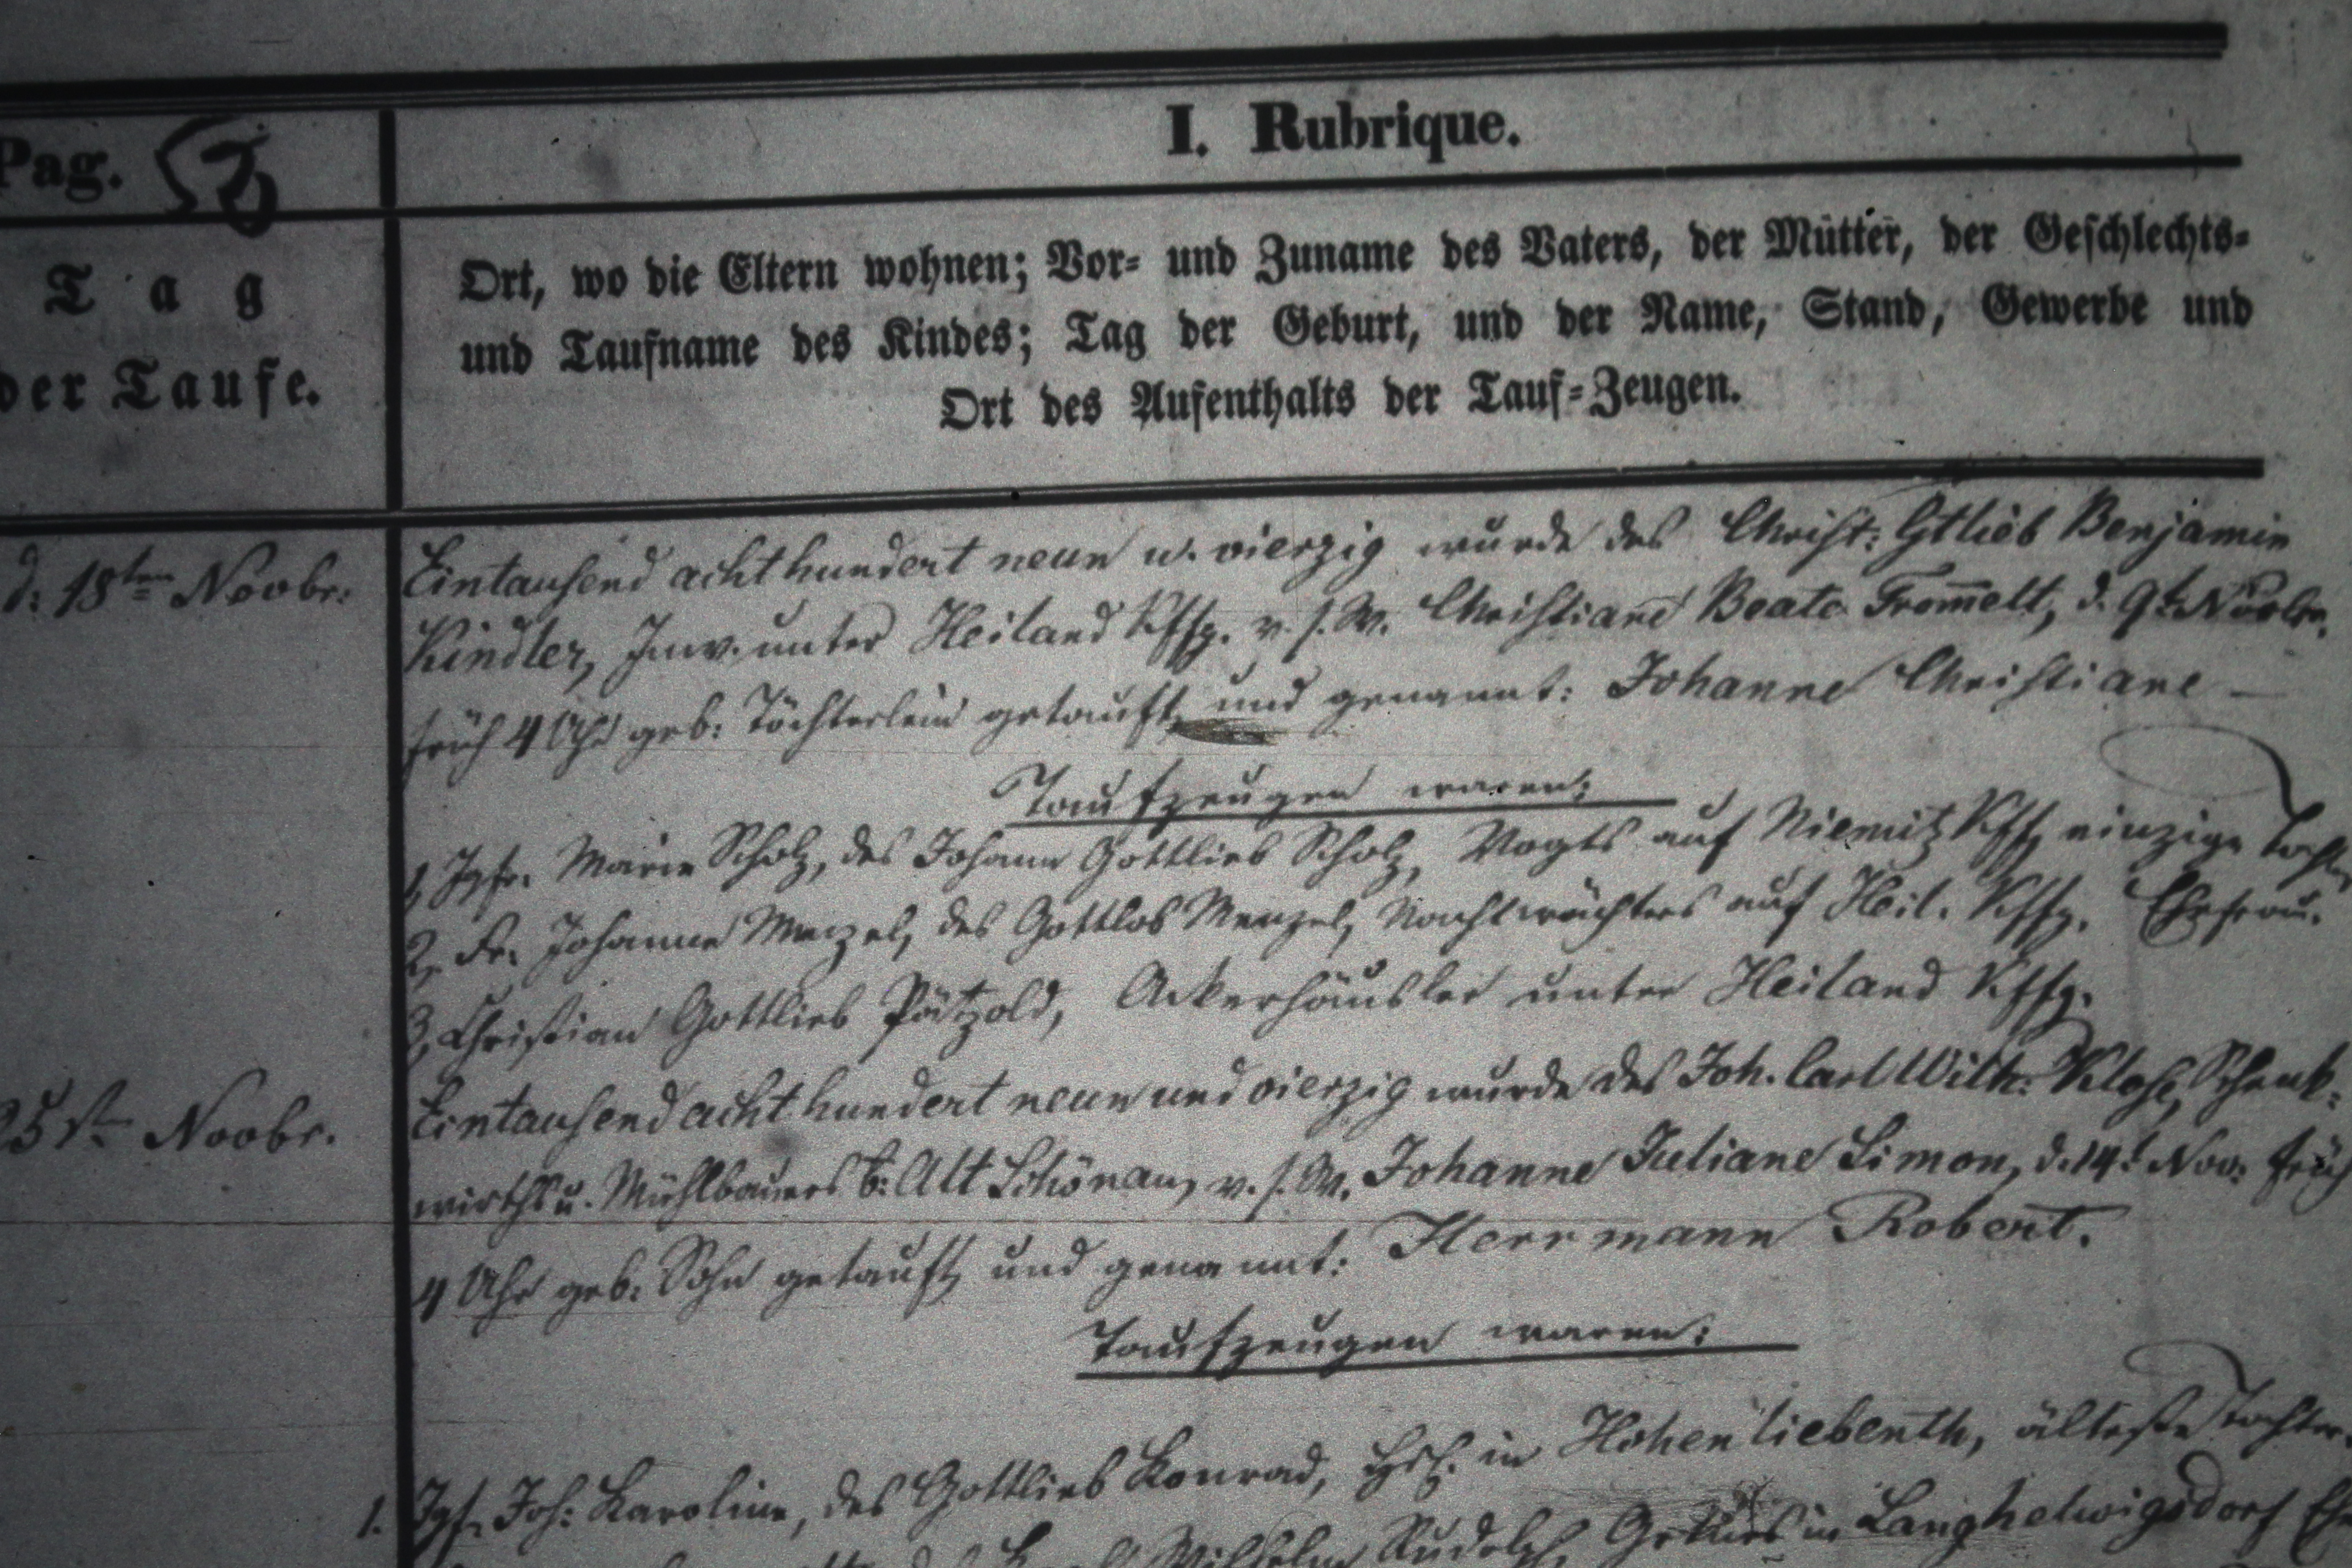 I. Rubrique.
Pag. 58
Tag
der Taufe.
Ort, wo die Eltern wohnen; Vor- und Zuname des Vaters, der Mutter, der Geschlechts-
und Taufname des Kindes; Tag der Geburt, und der Name, Stand, Gewerbe und
Ort des Aufenthalts der Tauf-Zeugen.
d: 18ten Novbr:
Eintausend acht hundert neun u. vierzig wurde des Christ: Gtlieb Benjamin
Kindler, Inw. unter Heiland Kffg. v. s. W. Christiane Beate Trom̅elt, d. 9t. Novbr.
früh 4 Uhr geb: Töchterlein getauft, und genannt: Johanne Christiane —
Taufzeugen waren:
1, Jgfr. Marie Scholz, des Johann Gottlieb Scholz, Vogts auf Niemitz Kffg einzige Tochter
2, Fr. Johanne Menzel, des Gottlob Menzel, Nachtwächters auf Heil. Kffg. Ehefrau.
3, Christian Gottlieb Pätzold, Ackerhäusler unter Heiland Kffg.
25st Novbr.
Eintausend acht hundert neun und vierzig wurde des Joh. Carl Wilh: Klose, Schenk-
wirths u. Mühlbauers b: Alt Schönau, v. s. W. Johanne Juliane Simon, d. 14t Nov: früh
4 Uhr geb: Sohn getauft, und genannt: Herrmann Robert.
Taufzeugen waren:
1. Jgf. Joh: Karoline, des Gottlieb Konrad, in Hohenliebenth, älteste Tochter
Wilhelm Rudolph, in Langhelwigsdorf